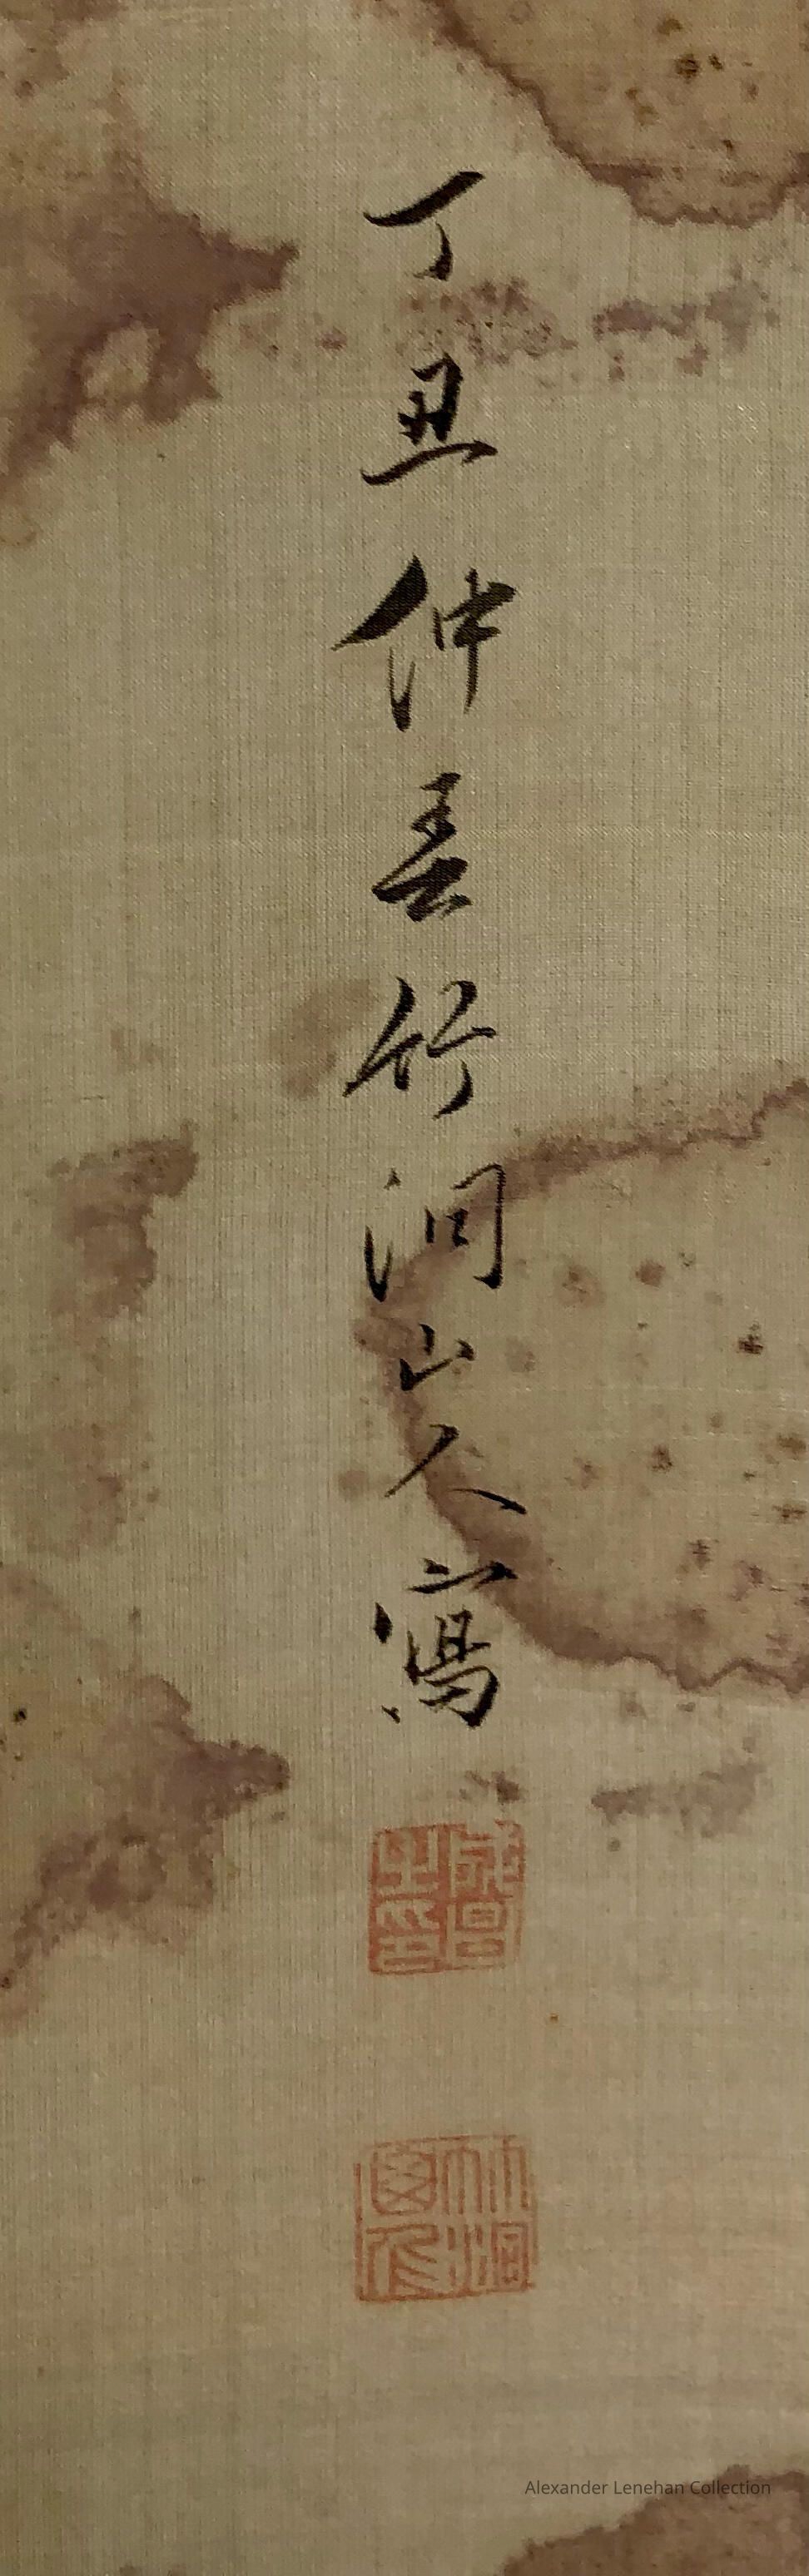 丁丑仲春竹洞山人寫
成昌之印
Alexander Lenehan Collection